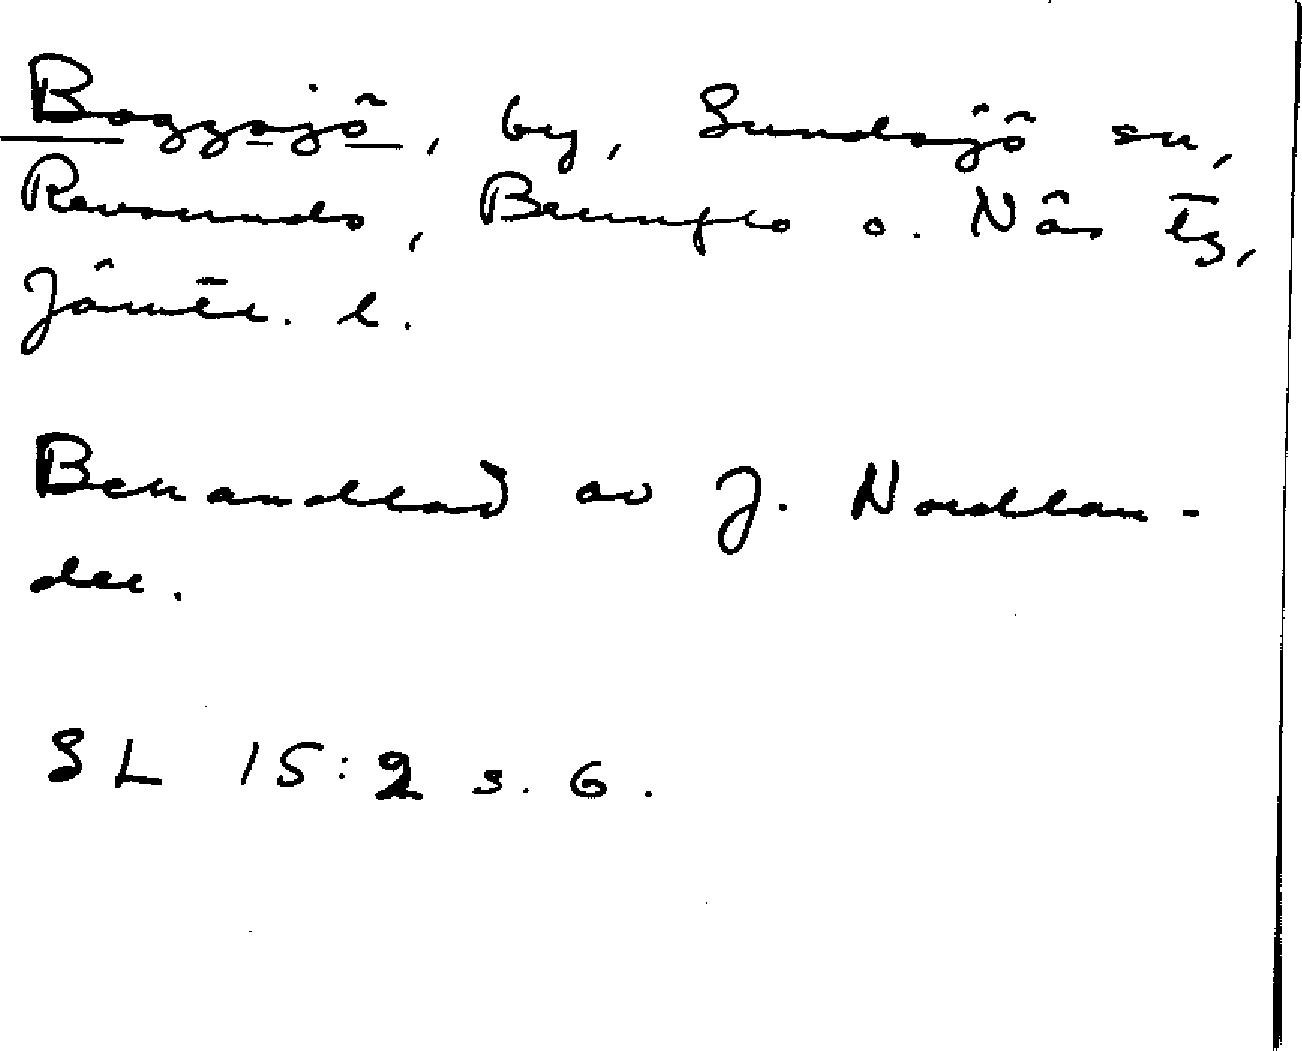 Boggsjö, by, Sundsjö sn,
Revsunds, Brunflo o. Näs tg,
Jämtl. l.
Behandlad av J. Nordlan-
der.
SL 15:2 s. 6.